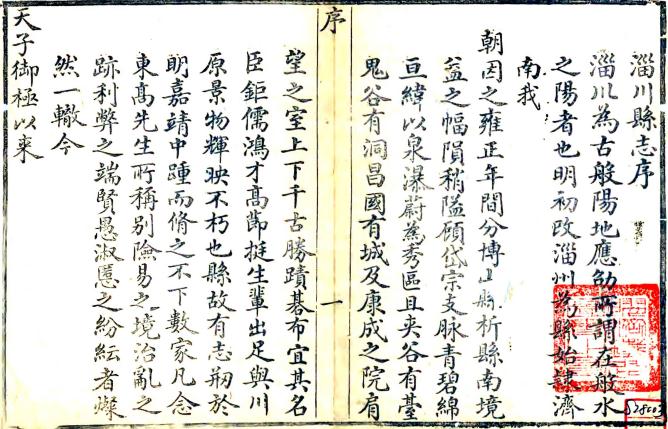 淄川縣志序
淄川為古般陽地應劭所謂在般水
之陽者也明初改淄州為縣始隸濟
南我
朝因之雍正年間分博山縣析縣南境
益之幅隕稍隘頋岱宗支脉青碧綿
亘緯以泉瀑蔚為秀區且夾谷有臺
鬼谷有洞昌國有城及康成之院肩
序
一
望之室上下千古勝蹟碁布宜其名
臣鉅儒鴻才高節挺生輩出足與川
原景物輝映不朽也縣故有志刱於
明嘉靖中踵而脩之不下數家凡念
東髙先生所稱别險易之境治亂之
跡利弊之端賢愚淑慝之紛紜者燦
然一轍今
天子御極以來